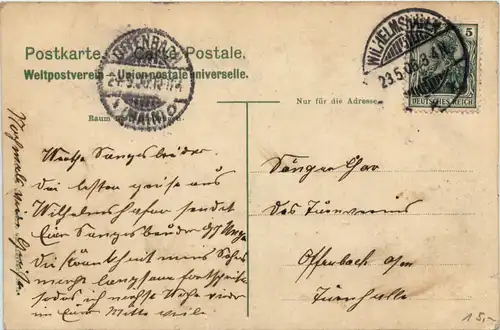 Postkarte. — Carte Postale.
Weltpostverein — Union postale universelle.
Nur für die Adresse.
WILHELMSHAVEN
23.5.06.3-4N.
5
DEUTSCHES REICH
OFFENBACH
(MAIN)
Raum
Werthe Sangesbrüder.
Die besten grüße aus
Wilhelmshafen sendet
Euer Sangesbruder
Die Krankheit meines
macht langsam fortschritte
sodas ich nächste Woche wieder
in Eurer Mitte weile
Nochmals viele
Sänger Chor
des Turnvereins
Offenbach a/m
Turnhalle
15,-